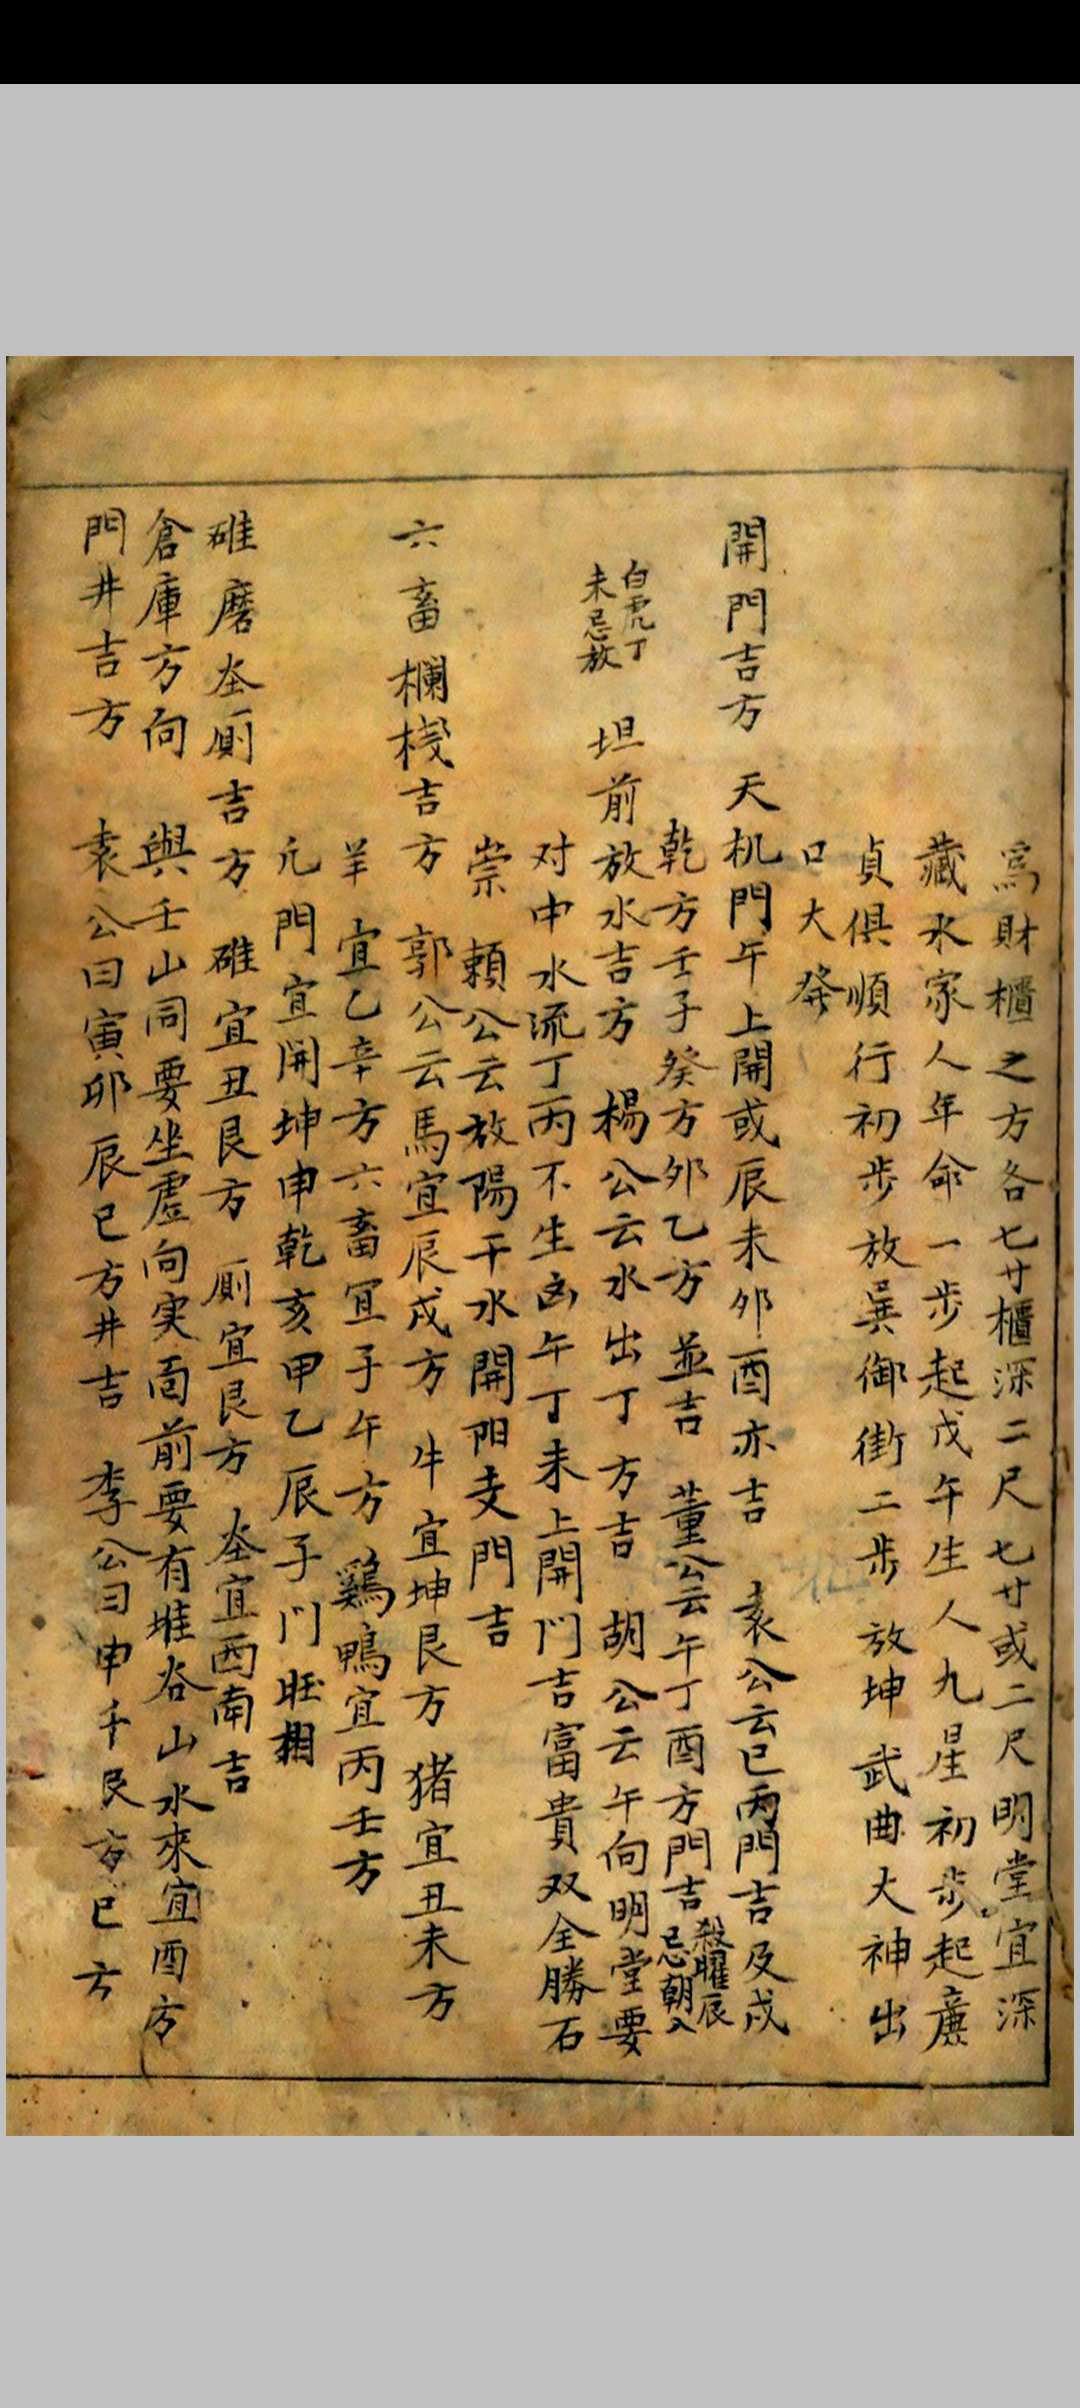 為財櫃之方各七寸櫃深二尺七寸或二尺明堂宜深
藏水家人年命一步起戊午生人九星初步起廉
貞俱順行初步放巽御街二步放坤武曲大神出
口大發
開門吉方 天机門午上開或辰未卯酉亦吉 袁公云巳丙門吉及戍
乾方壬子癸方卯乙方並吉 董公云午丁酉方門吉
殺曜辰
忌朝入
白虎丁
未忌放
坦前放水吉方 楊公云水出丁方吉 胡公云午向明堂要
对中水流丁丙不生凶午丁未上開門吉富貴双全勝石
崇 賴公云放陽干水開阳支門吉
六畜欄棧吉方 郭公云馬宜辰戍方 牛宜坤艮方 猪宜丑未方
羊宜乙辛方六畜宜子午方 鷄鴨宜丙壬方
凢門宜開坤申乾亥甲乙辰子门旺相
碓磨厺厠吉方 碓宜丑艮方 厠宜艮方 厺宜西南吉
倉庫方向 與壬山同要坐虛向实面前要有堆谷山水來宜酉方
門井吉方 袁公曰寅卯辰巳方井吉 李公曰申千艮方巳方